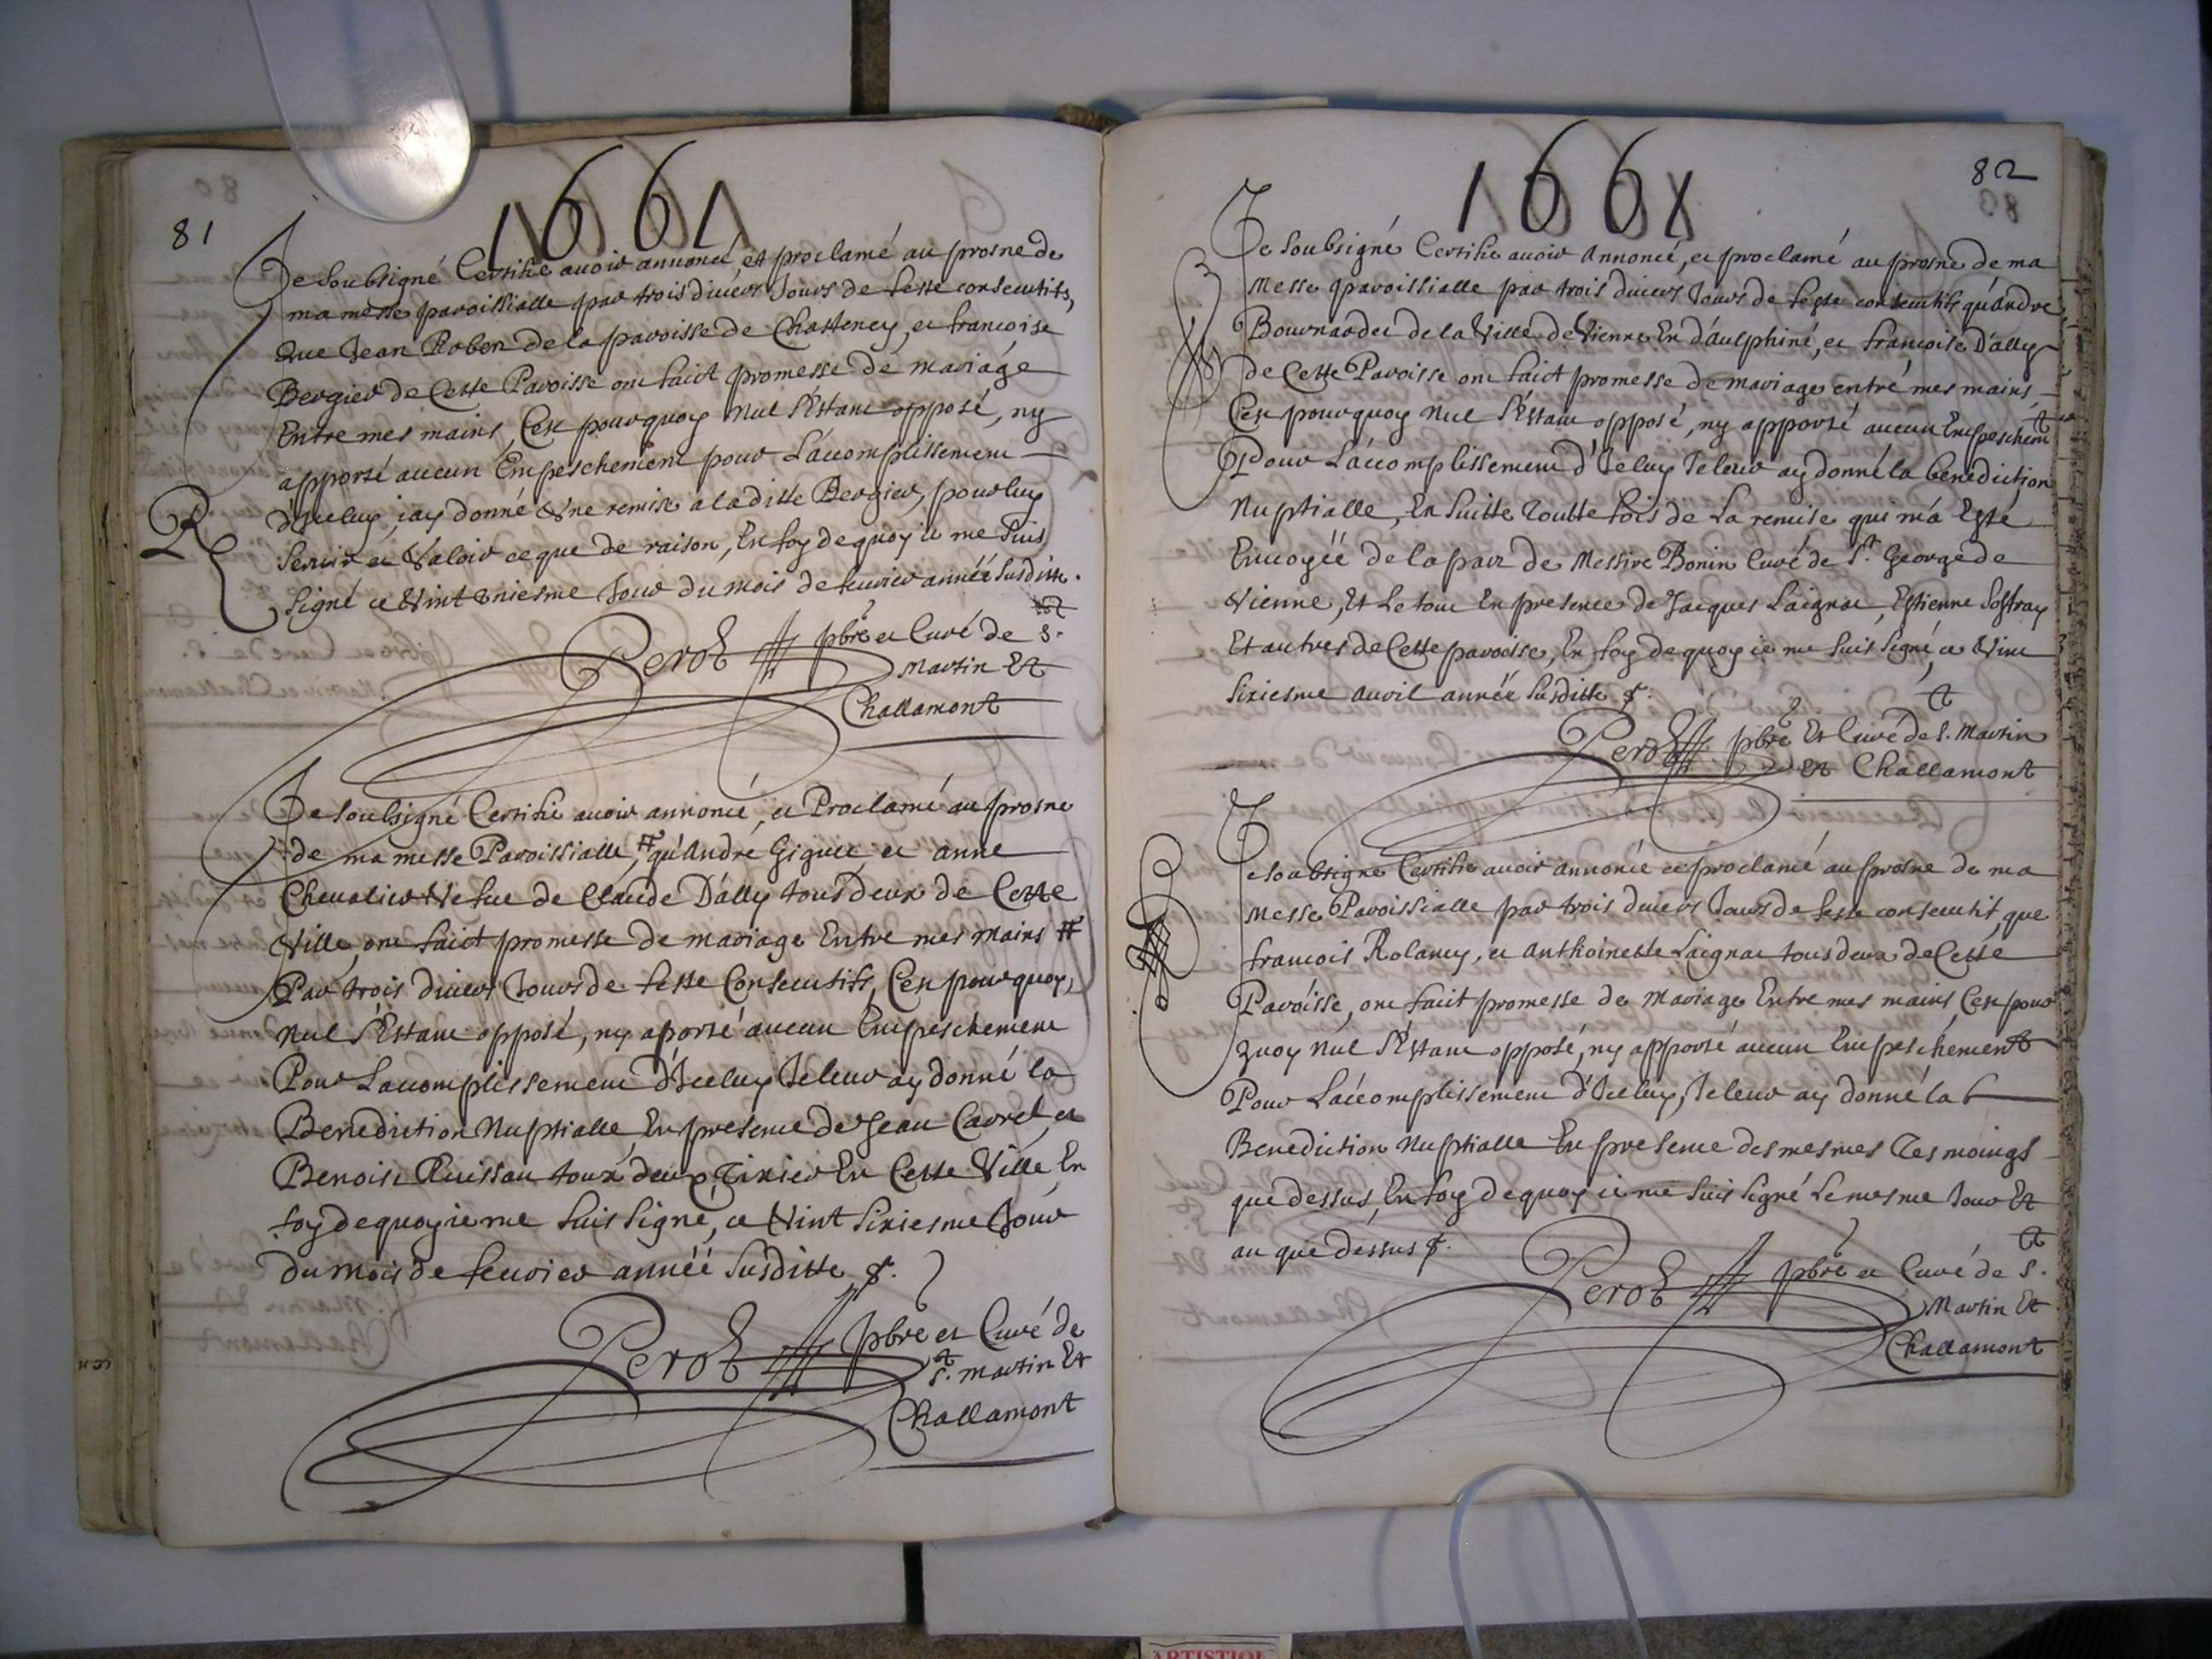 81
1661
Je soubsigné Certifie avoir annoncé, et proclamé au prosne de
ma messe paroissialle par trois divers Jours de feste consecutifs,
que Jean Robert de la paroisse de Chasteney, et francoise
Bergier de Cette Paroisse ont faict promesse de mariage
Entre mes mains, C'est pourquoy Nul s'Estant opposé, ny
apporté aucun Empeschement pour L'accomplissement
d'Jceluy, j'ay donné Une remise a laditte Bergier, pour luy
servir et Valoir ce que de raison, En foy dequoy ie me suis
signé ce Vint uniesme Jour du mois de fevrier année susditte.
Perot pbre et Curé de S.t
Martin Et
Challamont
Je soubsigné Certifie avoir annoncé, et Proclamé au prosne
de ma messe Paroissialle, # qu'André et anne
Chevalier Vefue de Claude D'ally tous deux de Cette
Ville, ont faict promesse de mariage Entre mes mains #
Par trois divers Jours de feste Consecutifs, C'est pourquoy,
Nul s'Estant opposé, ny aporté aucun Empeschement
Pour L'accomplissement d'Jceluy Je leur ay donné la
Benediction Nuptialle, En presence de Jean Carrel, et
Benoist Ruissau toux deux Tixier En Cette Ville, En
foy dequoy ie me suis signé, ce Vint sixiesme Jour
du mois de fevrier année susditte &.
Perot pbre et Curé de
S.t Martin Et
Challamont
82
1661
Je soubsigné Certifie avoir annoncé, et proclamé au prosne de ma
Messe paroissialle par trois divers Jours de feste consecutifs qu'Andre
Bournardet de la Ville de Vienne En d'aulphiné, et francoise D'ally
de Cette Paroisse ont faict promesse de mariage entre mes mains,
C'est pourquoy Nul s'Estant opposé, ny apporté aucun Empeschem.t
Pour L'accomplissement d'Jceluy Je leur ay donné la benediction
Nuptialle, En suitte Toutte fois de La remise qui m'a Esté
Envoyéé de la part de Messire Bonin Curé de S.t George de
Vienne, Et Le tout En presence de Jacques Laignac, Estienne
Et autres de Cette paroisse, En foy dequoy ie me suis signé, ce Vint
sixiesme avril année susditte &.
Perot pbre Et Curé de S.t Martin
Et Challamont
Je soubsigné Certifie avoir annoncé et proclamé au prosne de ma
Messe Paroissialle par trois divers Jours de feste consecutif, que
francois Rolancy, et Anthoinette Laignac tous deux de Cette
Paroisse, ont faict promesse de Mariage Entre mes mains, C'est pour
quoy Nul s'Estant opposé, ny apporté aucun Empeschement
Pour L'accomplissement d'Jceluy, Je leur ay donné la
Benediction Nuptialle En presence des mesmes Tesmoings
que dessus, En foy dequoy ie me suis signé Le mesme Jour Et
an que dessus &.
Perot pbre et Curé de S.t
Martin Et
Challamont